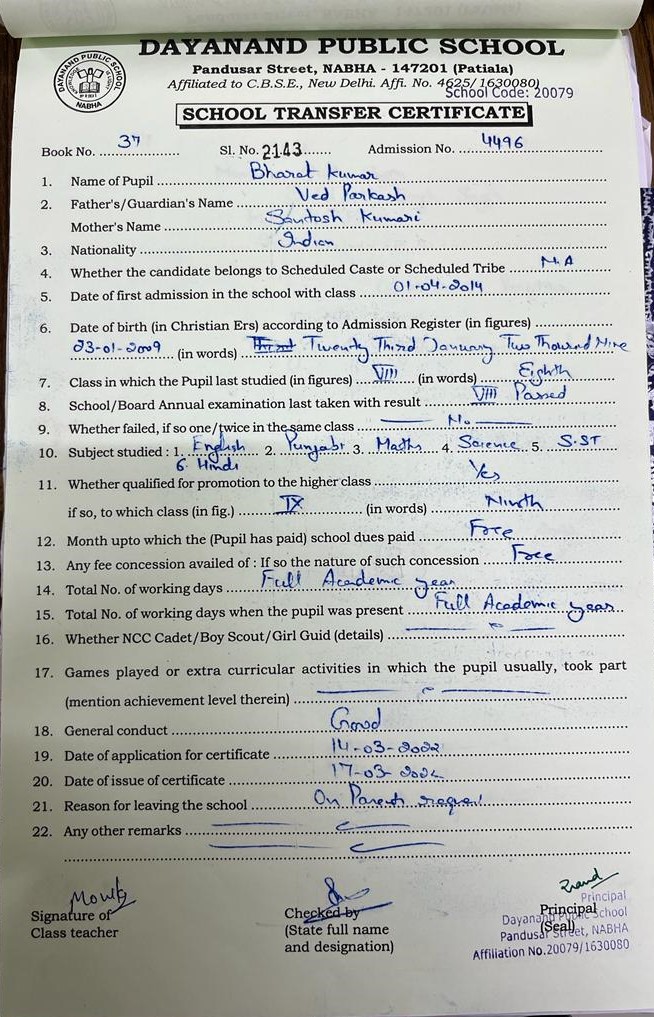 DAYANAND PUBLIC SCHOOL
DAYANAND PUBLIC SCHOOL
NABHA
Pandusar Street, NABHA - 147201 (Patiala)
Affiliated to C.B.S.E., New Delhi. Affi. No. 4625/ 1630080)
School Code: 20079
SCHOOL TRANSFER CERTIFICATE
Book No. 37 Sl. No. 2143 Admission No. 4496
1. Name of Pupil Bharat Kumar
2. Father's/Guardian's Name Ved Parkash
Mother's Name Santosh Kumari
3. Nationality Indian
4. Whether the candidate belongs to Scheduled Caste or Scheduled Tribe N.A
5. Date of first admission in the school with class 01-04-2014
6. Date of birth (in Christian Ers) according to Admission Register (in figures)
23-01-2009 (in words) Twenty Third January Two Thousand Nine
7. Class in which the Pupil last studied (in figures) VIII (in words) Eighth
8. School/Board Annual examination last taken with result VIII Passed
9. Whether failed, if so one/twice in the same class No
10. Subject studied : 1. English 2. Punjabi 3. Maths 4. Science 5. S.ST
6. Hindi
11. Whether qualified for promotion to the higher class Yes
if so, to which class (in fig.) IX (in words) Ninth
12. Month upto which the (Pupil has paid) school dues paid Free
13. Any fee concession availed of : If so the nature of such concession Free
14. Total No. of working days Full Academic year
15. Total No. of working days when the pupil was present Full Academic year
16. Whether NCC Cadet/Boy Scout/Girl Guid (details)
17. Games played or extra curricular activities in which the pupil usually, took part
(mention achievement level therein)
18. General conduct Good
19. Date of application for certificate 14-03-2022
20. Date of issue of certificate 17-03-2022
21. Reason for leaving the school On Parents request
22. Any other remarks
Signature of
Class teacher
Checked by
(State full name
and designation)
Principal
(Seal)
Principal
Dayanand Public School
Pandusar Street, NABHA
Affiliation No.20079/1630080